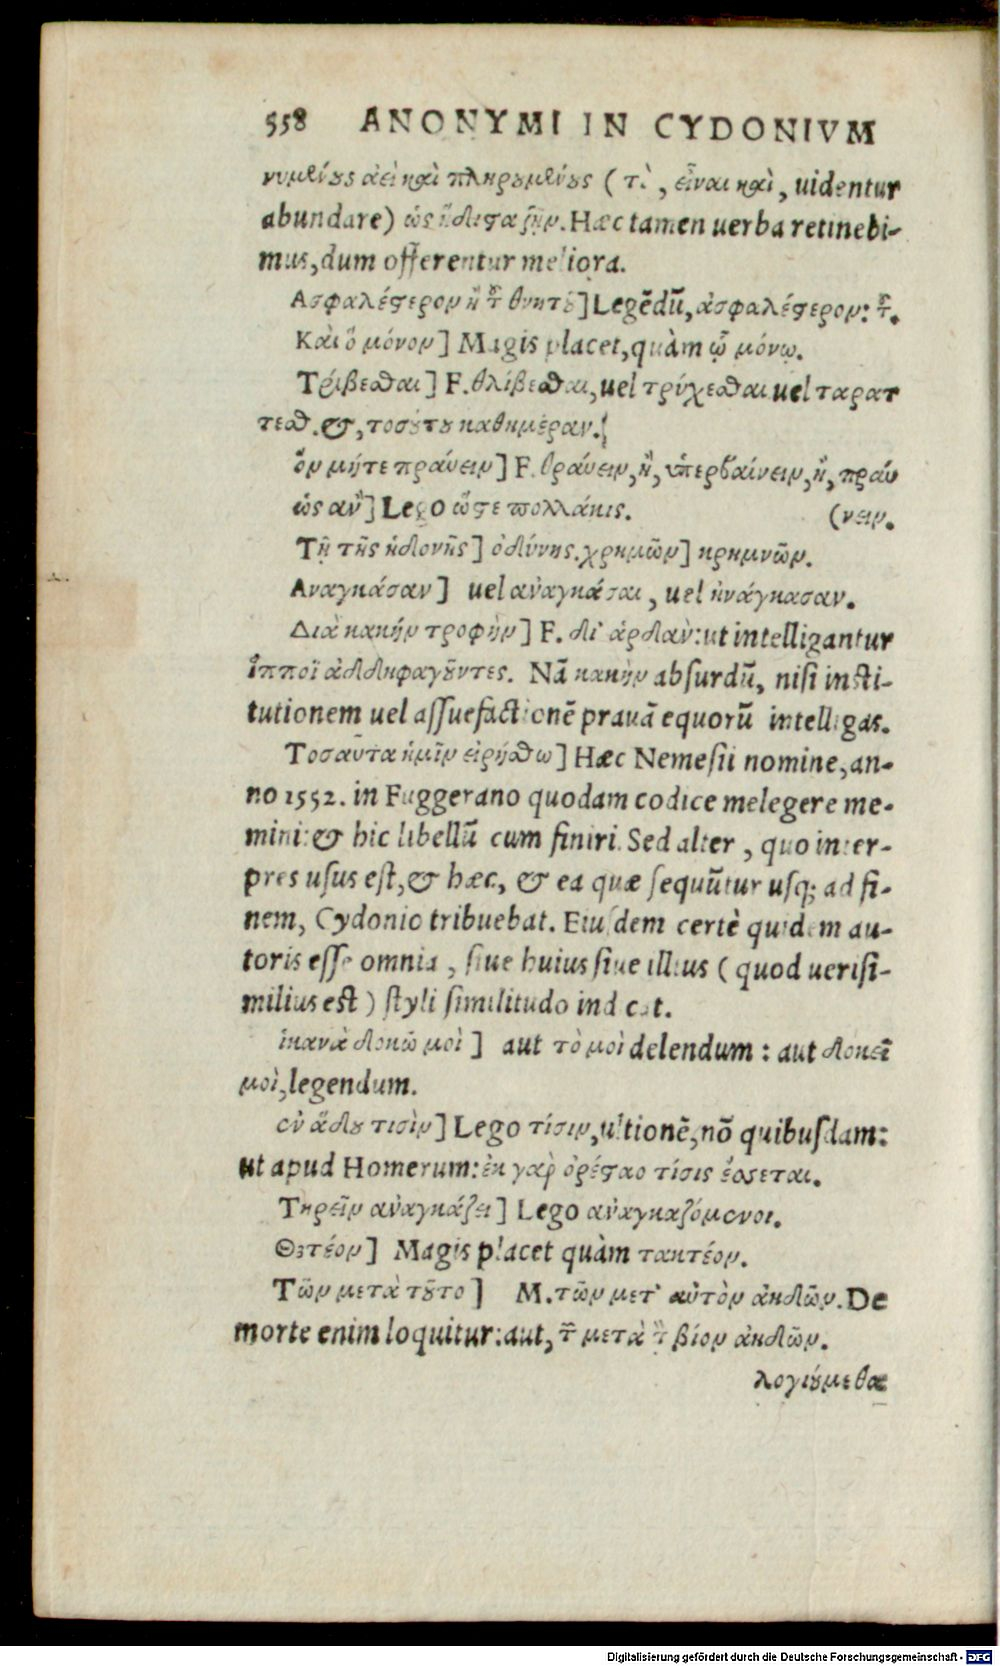 558 ANONYMI IN CYDONIVM
νυμένους ἀεὶ καὶ πληρουμένους (τὸ, εἶναι καὶ, uidentur
abundare) ὡς ἥδιστα ζῆν. Hæc tamen uerba retinebi-
mus, dum offerentur meliora.
Ασφαλέστερον ἢ τὸν θνητὸν] Legēdū, ἀσφαλέστερον: τὸν.
Καὶ ὃ μόνον] Magis placet, quàm ᾧ μόνῳ.
Τρίβεσθαι] F. θλίβεσθαι, uel τρύχεσθαι uel ταρατ
τεσθ. &, τοσούτου καθημέραν.
ὃν μήτε πραΰειν] F. θραύειν, ἢ, ὑπερβαίνειν, ἢ, πραΰ
ὡς ἂν] Lego ὥστε πολλάκις. (νειν.
Τῇ τῆς ἡδονῆς] ὀδύνης. χρημῶν] κρημνῶν.
Αναγκάσαν] uel ἀναγκάσαι, uel ἠνάγκασαν.
Διὰ κακὴν τροφὴν] F. δι' ἀρδὰν: ut intelligantur
ἵπποι ἀδδηφαγοῦντες. Nā κακὴν absurdū, nisi insti-
tutionem uel assuefactionē prauā equorū intelligas.
Τοσαῦτα ἡμῖν εἰρήσθω] Hæc Nemesii nomine, an-
no 1552. in Fuggerano quodam codice me legere me-
mini: & hic libellū cum finiri. Sed alter, quo inter-
pres usus est, & hæc, & ea quæ sequūtur usq; ad fi-
nem, Cydonio tribuebat. Eiusdem certè quidem au-
toris esse omnia, siue huius siue illius (quod uerisi-
milius est) styli similitudo indicat.
ἱκανὰ δοκῶ μοὶ] aut τὸ μοὶ delendum: aut δοκεῖ
μοὶ, legendum.
ἐν ᾅδου τισὶν] Lego τίσιν, ultionē, nō quibusdam:
ut apud Homerum: ἐκ γὰρ ὀρέσταο τίσις ἔσσεται.
Τηρεῖν ἀναγκάζει] Lego ἀναγκαζόμενοι.
Θετέον] Magis placet quàm τακτέον.
Τῶν μετὰ τοῦτο] M. τῶν μετ' αὐτὸν ἀηδῶν. De
morte enim loquitur: aut, τῶν μετὰ τὸν βίον ἀηδῶν.
λογιούμεθα
Digitalisierung gefördert durch die Deutsche Forschungsgemeinschaft - DFG